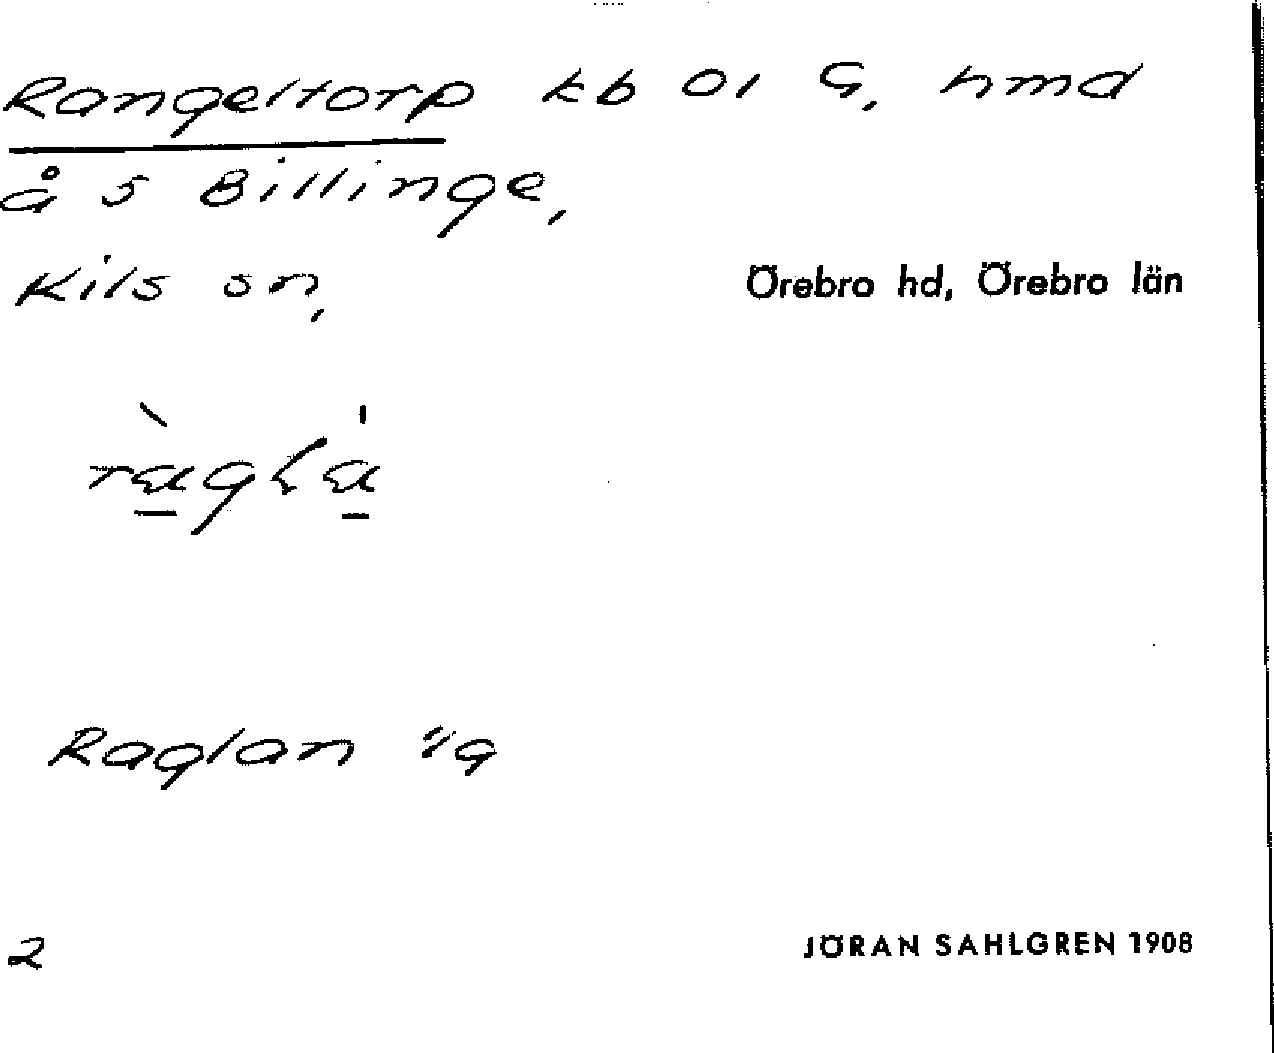 Rangeltorp kb ol G, hmd
å S Billinge,
Kils sn, Örebro hd, Örebro län
Raglan
2 JÖRAN SAHLGREN 1908